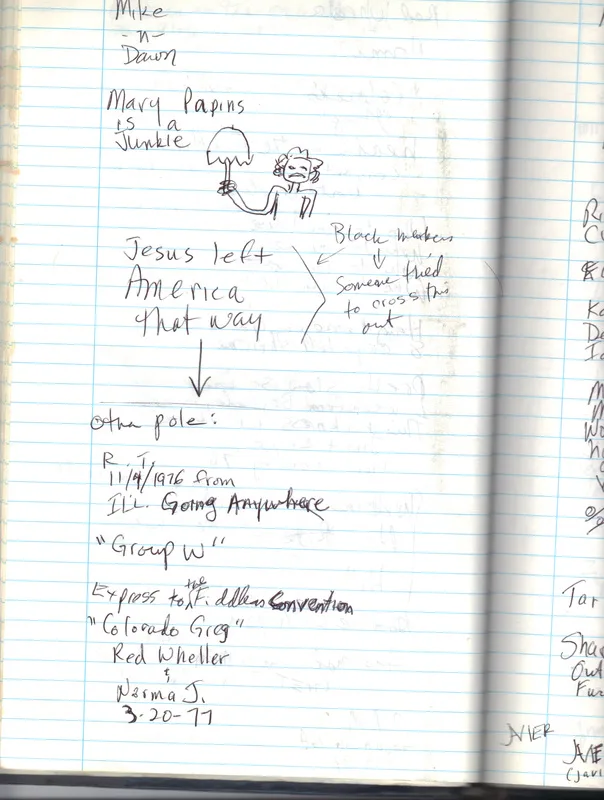 Mike
-n-
Dawn
Mary Papins
is a
Junkie
Jesus left
America
that way
Black markers
Someone tried
to cross this
out
Other pole:
R. T.
11/9/1976 from
ILL. Going Anywhere
"Group W"
Express to the Fiddlers Convention
"Colorado Greg"
Red Wheller
&
Norma J.
3-20-77
Tar
Shar
Out
Fur
JAVIER
JAVIE
(Javi